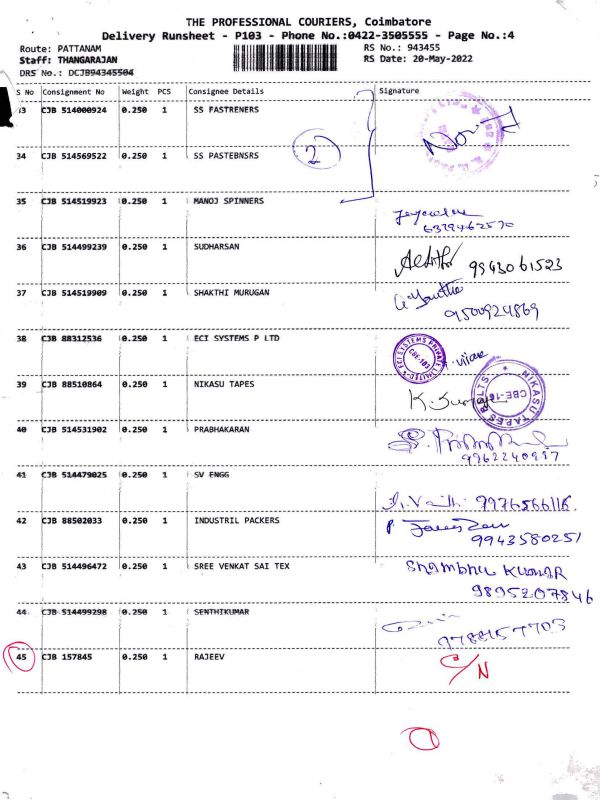 THE PROFESSIONAL COURIERS, Coimbatore
Delivery Runsheet - P103 - Phone No.:0422-3505555 - Page No.:4
Route: PATTANAM RS No.: 943455
Staff: THANGARAJAN RS Date: 20-May-2022
DRS No.: DCJB94345504
S No Consignment No Weight PCS Consignee Details Signature
33 CJB 514000924 0.250 1 SS FASTRENERS
2
34 CJB 514569522 0.250 1 SS PASTEBNSRS
35 CJB 514519923 0.250 1 MANOJ SPINNERS
6379462570
36 CJB 514499239 0.250 1 SUDHARSAN
9943061523
37 CJB 514519909 0.250 1 SHAKTHI MURUGAN
9500924869
38 CJB 88312536 0.250 1 ECI SYSTEMS P LTD
ECI SYSTEMS PRIVATE LIMITED CBE-103
39 CJB 88510864 0.250 1 NIKASU TAPES
NIKASU TAPES BELTS CBE-16
40 CJB 514531902 0.250 1 PRABHAKARAN
41 CJB 514479025 0.250 1 SV ENGG
42 CJB 88502033 0.250 1 INDUSTRIL PACKERS
9943580251
43 CJB 514496472 0.250 1 SREE VENKAT SAI TEX
SHAMBHU KUMAR
9895207846
44 CJB 514499298 0.250 1 SENTHIKUMAR
9788157703
45 CJB 157845 0.250 1 RAJEEV
C/N